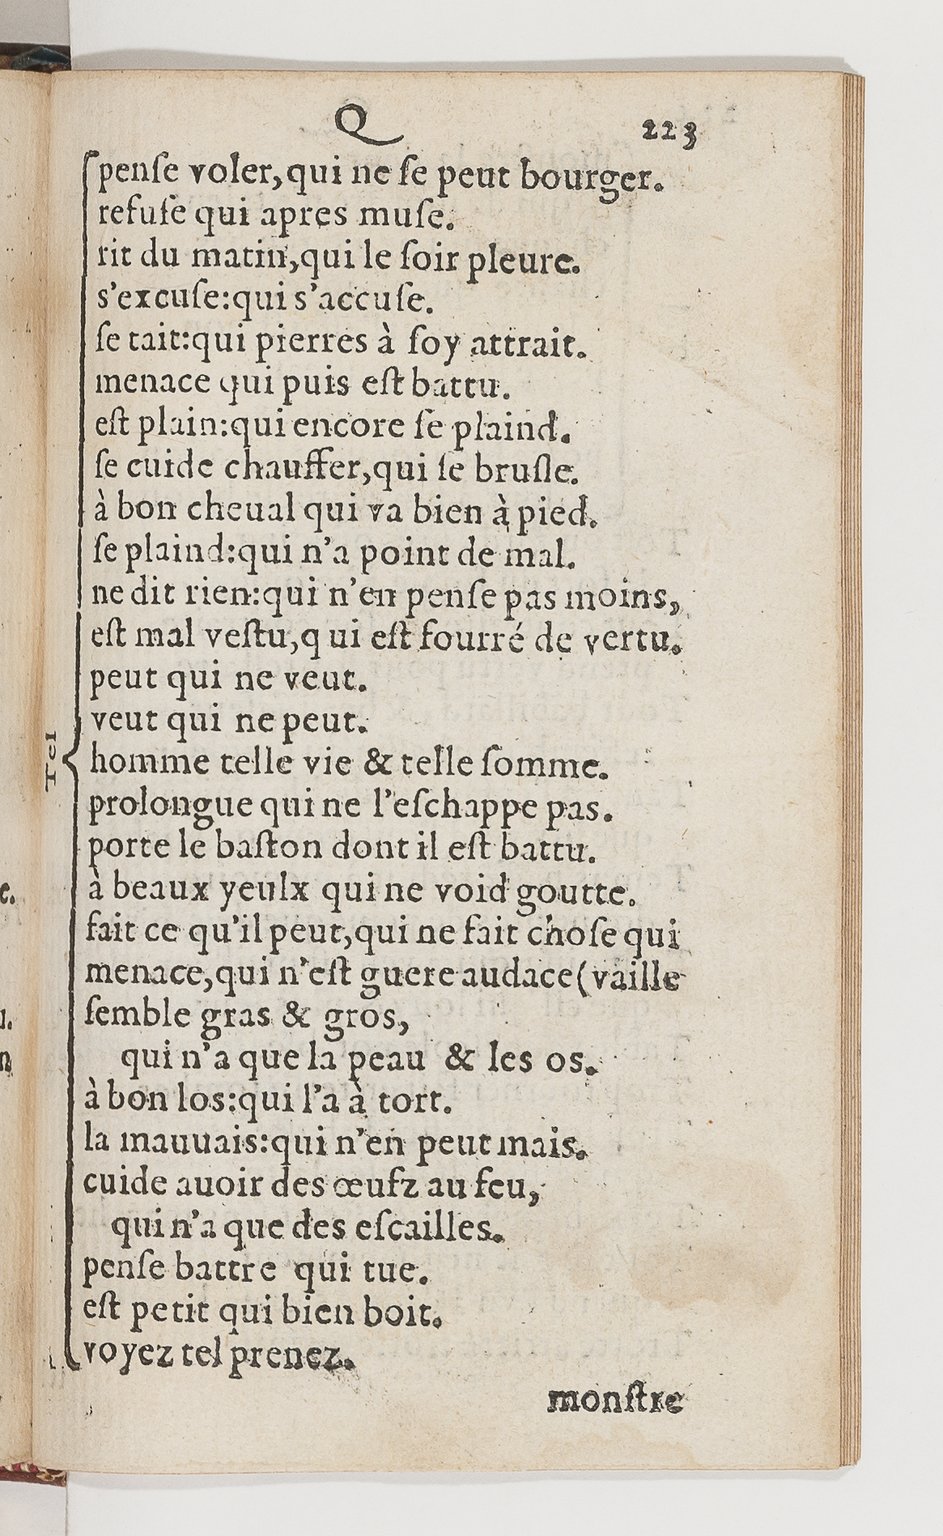 Q
223
penſe voler,qui ne ſe peut bourger.
refuſe qui apres muſe.
rit du matin,qui le ſoir pleure.
s'excuſe:qui s'accuſe.
ſe tait:qui pierres à ſoy attrait.
menace qui puis eſt battu.
eſt plain:qui encore ſe plaind.
ſe cuide chauffer,qui ſe bruſle.
à bon cheual qui va bien à pied.
ſe plaind:qui n'a point de mal.
ne dit rien:qui n'en penſe pas moins,
eſt mal veſtu,q ui eſt fourré de vertu.
peut qui ne veut.
veut qui ne peut.
Tel
homme telle vie & telle ſomme.
prolongue qui ne l'eſchappe pas.
porte le baſton dont il eſt battu.
à beaux yeulx qui ne void goutte.
fait ce qu'il peut,qui ne fait choſe qui
menace,qui n'eſt guere audace(vaille
ſemble gras & gros,
qui n'a que la peau & les os.
à bon los:qui l'a à tort.
la mauuais:qui n'en peut mais.
cuide auoir des œufz au feu,
qui n'a que des eſcailles.
penſe battre qui tue.
eſt petit qui bien boit.
voyez tel prenez.
monſtre